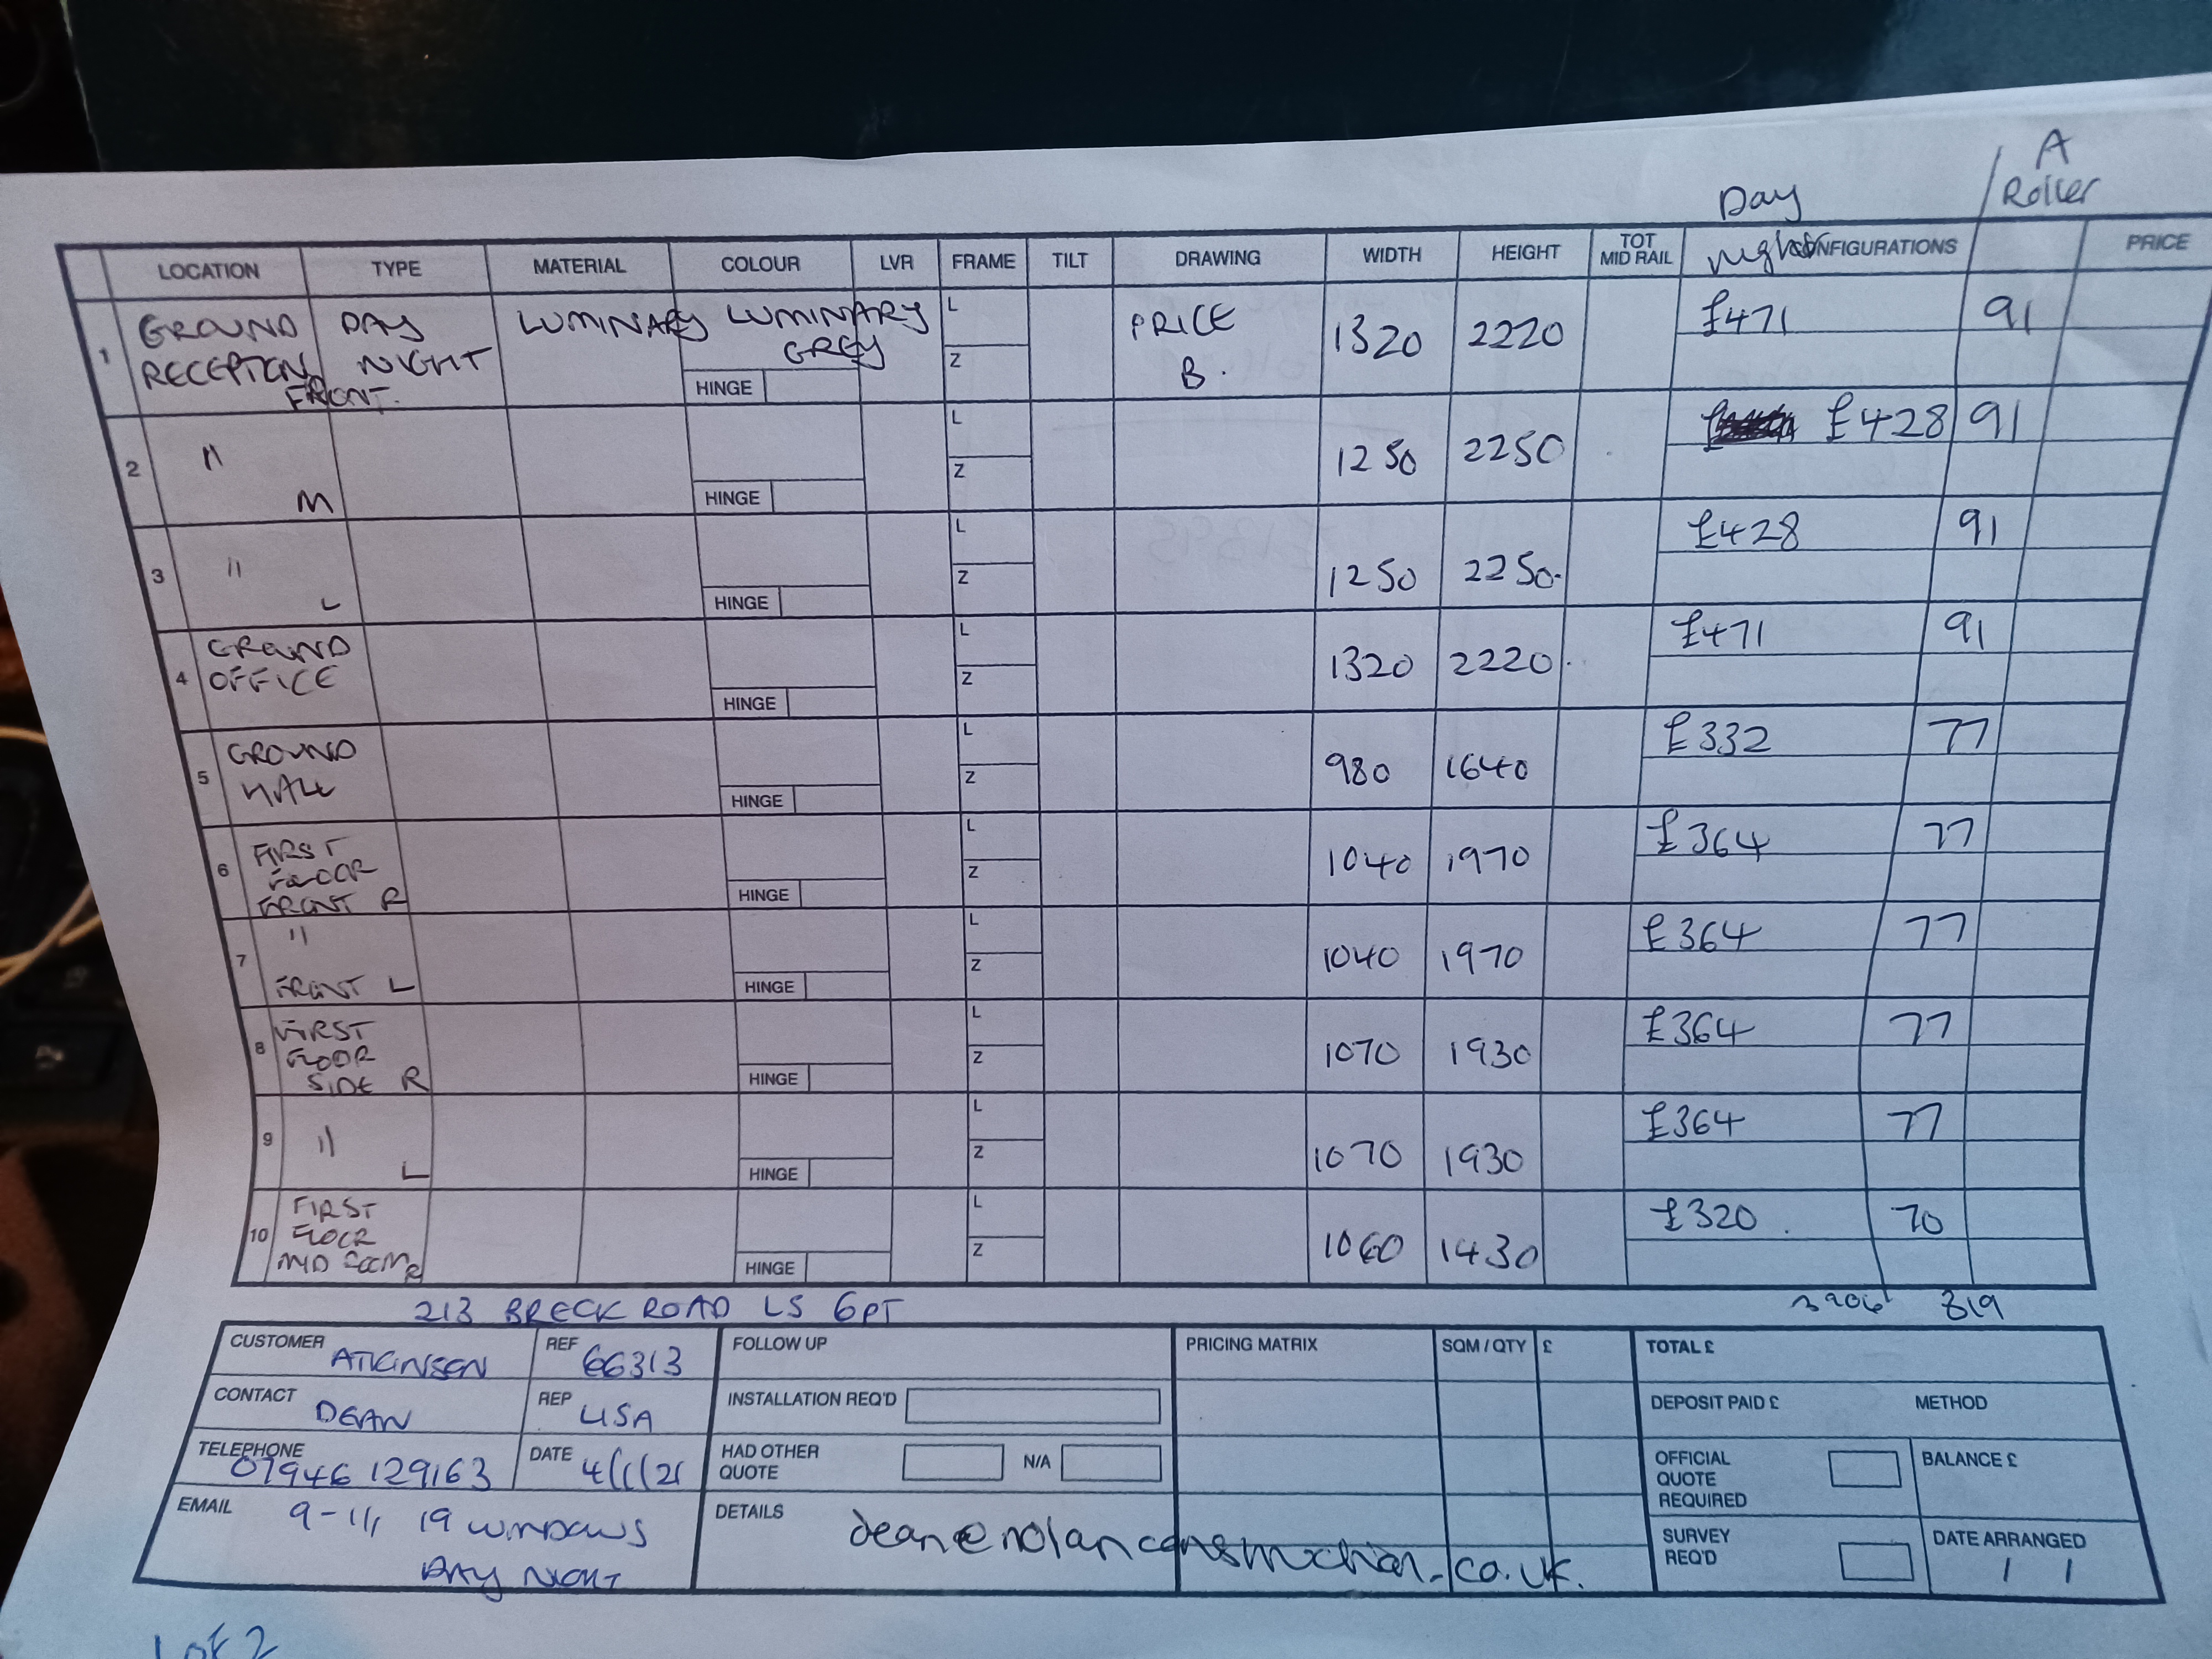 Day / A
night Roller
LOCATION TYPE MATERIAL COLOUR LVR FRAME TILT DRAWING WIDTH HEIGHT TOT MID RAIL CONFIGURATIONS PRICE
1 GROUND RECEPTION FRONT. DAY NIGHT LUMINARY LUMINARY GREY HINGE L Z PRICE B. 1320 2220 £471 91
2 " M HINGE L Z 1250 2250 £428 91
3 " L HINGE L Z 1250 2250. £428 91
4 GROUND OFFICE HINGE L Z 1320 2220. £471 91
5 GROUND HALL HINGE L Z 980 1640 £332 77
6 FIRST FLOOR FRONT R HINGE L Z 1040 1970 £364 77
7 " FRONT L HINGE L Z 1040 1970 £364 77
8 FIRST FLOOR SIDE R HINGE L Z 1070 1930 £364 77
9 " L HINGE L Z 1070 1930 £364 77
10 FIRST FLOOR MID ROOM R HINGE L Z 1060 1430 £320. 70
213 BRECK ROAD L5 6PT 3906 819
CUSTOMER ATKINSON REF 66313 FOLLOW UP PRICING MATRIX SQM / QTY £ TOTAL £
CONTACT DEAN REP LISA INSTALLATION REQ'D DEPOSIT PAID £ METHOD
TELEPHONE 07946 129163 DATE 4/1/21 HAD OTHER QUOTE N/A OFFICIAL QUOTE REQUIRED BALANCE £
EMAIL 9-11, 19 WINDOWS DAY NIGHT DETAILS dean@nolanconstruction.co.uk. SURVEY REQ'D DATE ARRANGED / /
1 of 2